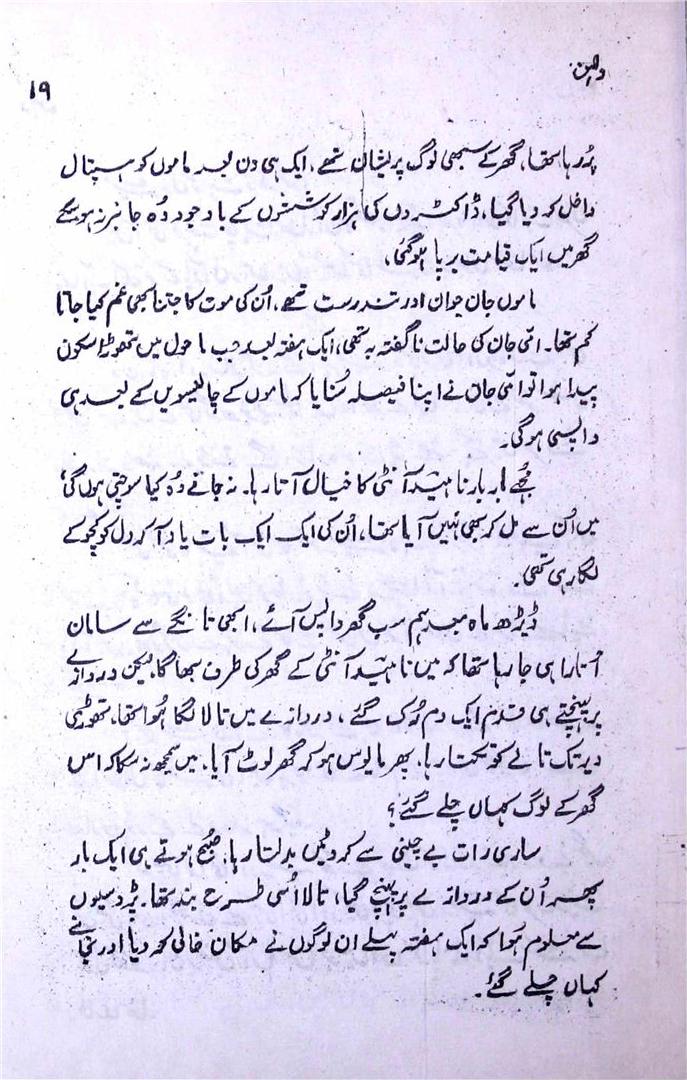 دلہن
۱۹
پڑ رہا تھا، گھر کے سبھی لوگ پریشان تھے، ایک ہی دن بعد ماموں کو ہسپتال
داخل کر دیا گیا، ڈاکٹروں کی ہزار کوششوں کے باوجود وُہ جانبر نہ ہو سکے
گھر میں ایک قیامت برپا ہو گئی،
ماموں جان جوان اور تندرست تھے، اُن کی موت کا جتنا بھی غم کیا جاتا
کم تھا۔ امّی جان کی حالت ناگفتہ بہ تھی، ایک ہفتہ بعد جب ماحول میں تھوڑا سکون
پیدا ہوا تو امّی جان نے اپنا فیصلہ سُنایا کہ ماموں کے چالیسویں کے بعد ہی
واپسی ہوگی۔
مجُھے بار بار ناہید آنٹی کا خیال آتا رہا۔ نہ جانے وُہ کیا سوچتی ہوں گی؛
میں اُن سے مل کر بھی نہیں آیا تھا، اُن کی ایک ایک بات یاد آ کر دل کو کچوکے
لگا رہی تھی۔
ڈیڑھ ماہ بعد ہم سب گھر واپس آئے، ابھی تانگے سے سامان
اُتارا ہی جا رہا تھا کہ میں ناہید آنٹی کے گھر کی طرف بھاگا، لیکن دروازے
پر پہنچتے ہی قدم ایک دم رُک گئے، دروازے میں تالا لگا ہُوا تھا، تھوڑی
دیر تک تالے کو تکتا رہا، پھر مایوس ہو کر گھر لوٹ آیا۔ میں سمجھ نہ سکا کہ اس
گھر کے لوگ کہاں چلے گئے؟
ساری رات بے چینی سے کروٹیں بدلتا رہا، صُبح ہوتے ہی ایک بار
پھر اُن کے دروازے پر پہنچ گیا، تالا اُسی طرح بند تھا۔ پڑوسیوں
سے معلوم ہُوا کہ ایک ہفتہ پہلے ان لوگوں نے مکان خالی کر دیا اور نجانے
کہاں چلے گئے۔